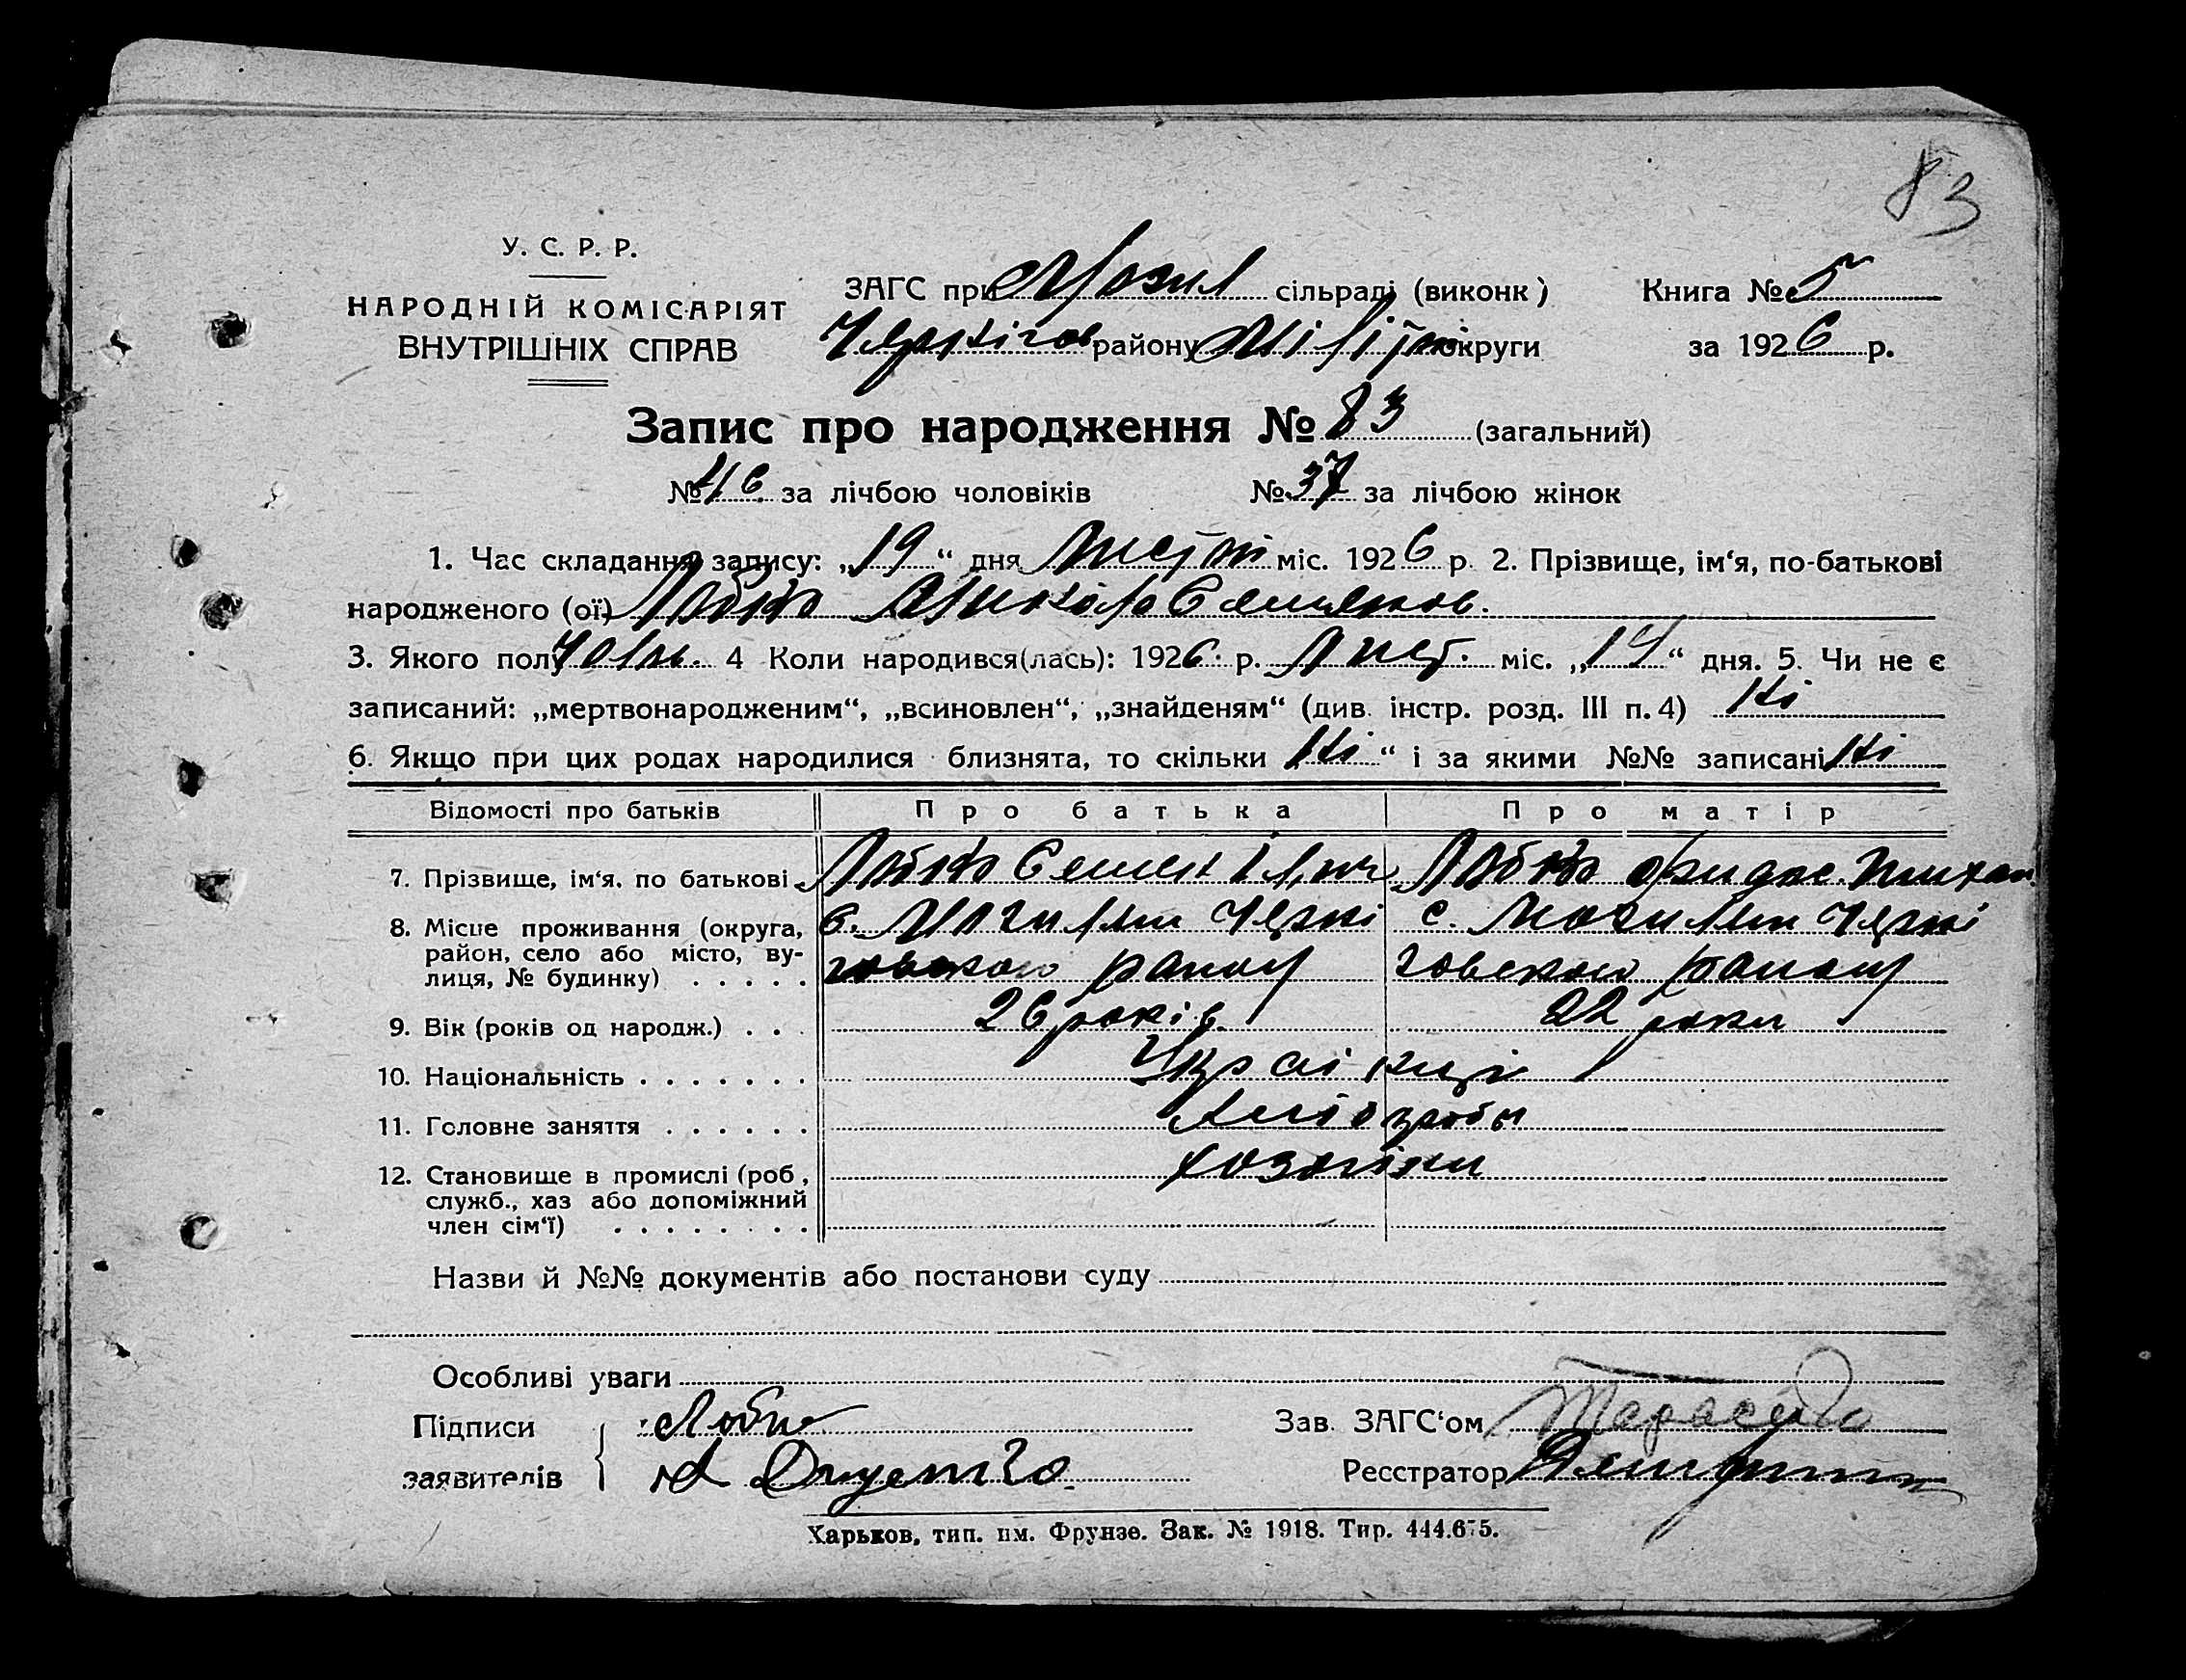 83
У. С. Р. Р.
НАРОДНІЙ КОМІСАРІЯТ
ВНУТРІШНІХ СПРАВ
ЗАГС при Могил сільраді (виконк)
Книга № 5
Чернігов району Меліт округи
за 1926 р.
Запис про народження № 83 (загальний)
№ 46 за лічбою чоловіків № 37 за лічбою жінок
1. Час складання запису: „19“ дня міс. 1926 р. 2. Прізвище, ім‘я, по-батькові
народженого (ої) Микола Семенов.
3. Якого полу Чолов. 4 Коли народився(лась): 1926 р. Лист. міс. „14“ дня. 5. Чи не є
записаний: „мертвонародженим“, „всиновлен“, „знайденям“ (див. інстр. розд. III п. 4) Ні
6. Якщо при цих родах народилися близнята, то скільки „Ні“ і за якими №№ записані Ні
Відомості про батьків Про батька Про матір
7. Прізвище, ім‘я, по батькові Семен
8. Місце проживання (округа, с. Могиляни Черні с. Могиляни Черні
район, село або місто, ву- говского району говского району
лиця, № будинку) . . . . .
9. Вік (років од народж.) . . . 26 років 22 роки
10. Національність . . . . . . . Українці
11. Головне заняття . . . . . . Хліборобы
12. Становище в промислі (роб, хозяіни
служб., хаз або допоміжний
член сім‘ї) . . . . . . . .
Назви й №№ документів або постанови суду
Особливі уваги
Підписи
Зав. ЗАГС‘ом
заявителів
Реєстратор
Харьков, тип. им. Фрунзе. Зак. № 1918. Тир. 444.675.